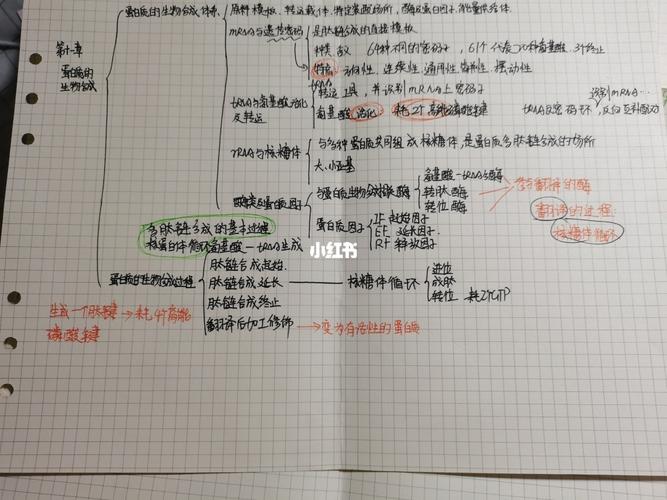 第十一章
蛋白质的
生物合成
蛋白质的生物合成体系
原料模板、转运载体、特定装配场所、酶及蛋白因子、能量供给体
mRNA与遗传密码
是肽链合成的直接模板
种类 数 64种不同的密码子，61个代表20种氨基酸，3个终止
特点 方向性、连续性、通用性、简并性、摆动性
tRNA与氨基酸活化
及转运
tRNA
转运工具，并识别mRNA上密码子
氨基酸 活化 耗2个高能磷酸键
识别mRNA…
tRNA反密码环，反向互补
rRNA与核糖体
与多种蛋白质共同组成核糖体，是蛋白质多肽链合成的场所
大、小亚基
酶类及蛋白质因子
与蛋白质生物合成有关酶
氨基酸-tRNA合酶
转肽酶
转位酶
参与翻译的酶
翻译的过程
核糖体循环
蛋白质因子
IF 起始因子
EF 延长因子
RF 释放因子
多肽链合成的基本过程
核蛋白体循环 氨基酸-tRNA生成
小红书
蛋白质的生物合成过程
肽链合成起始
肽链合成延长
肽链合成终止
翻译后加工修饰
核糖体循环
进位
成肽
转位 耗2个GTP
生成一个肽键→耗4个高能
磷酸键
→变为有活性的蛋白酶